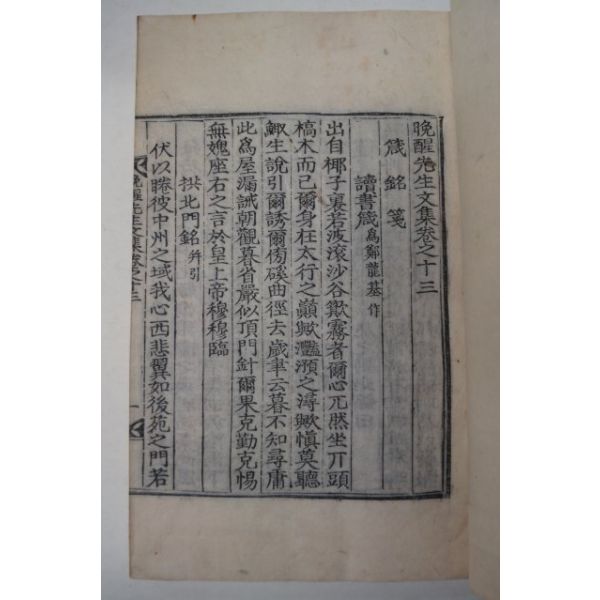 晩醒先生文集卷之十三
箴 銘 箋
讀書箴 爲鄭龍基作
出自椰子裏若波滾沙谷歕霧者爾心兀然坐丌頭
槁木而已爾身在太行之巓歟灩澦之潯歟愼莫聽
鯫生說引爾誘爾傍磎曲徑去歲聿云暮不知尋庸
此爲屋漏誡朝觀暮省嚴似頂門針爾果克勤克惕
無媿座右之言於皇上帝穆穆臨
拱北門銘 幷引
伏以睠彼中州之域我心西悲翼如後苑之門若
晩醒先生文集卷之十三 一